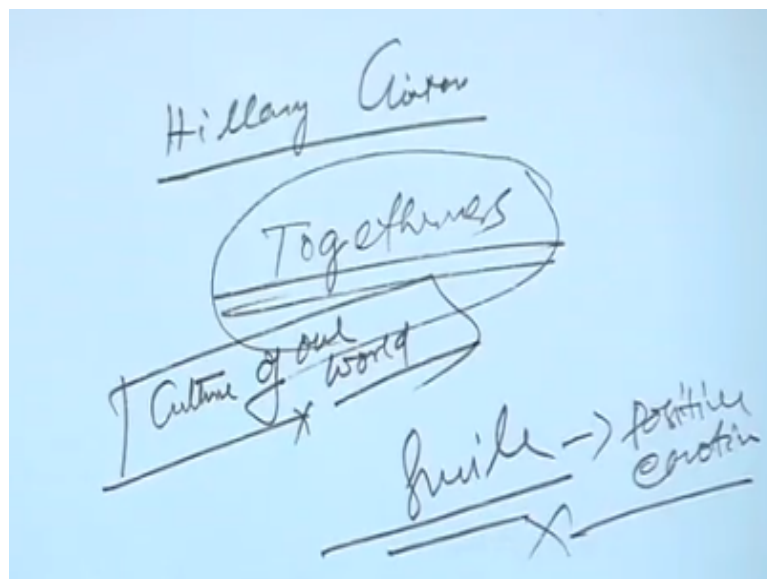 Hillary Clinton
Togetherness
Culture of our
world
Smile → positive
emotion